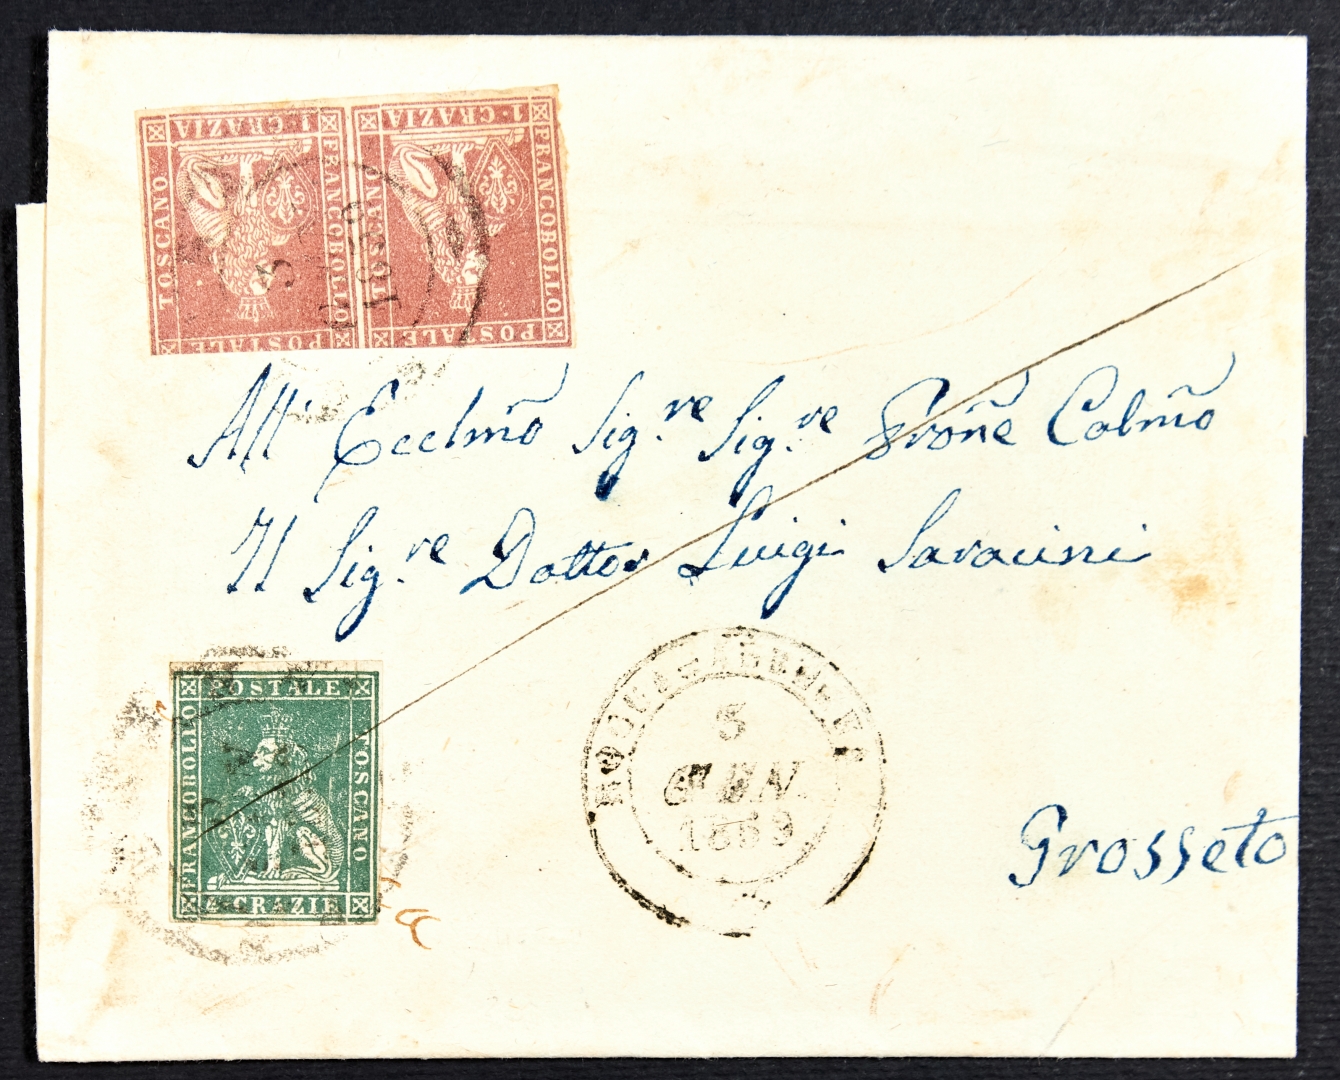 1·GRAZIA
FRANCOBOLLO
POSTALE
TOSCANO
1·GRAZIA
FRANCOBOLLO
POSTALE
TOSCANO
All' Ecclmõ Sig.re Sig.re Prone Colmõ
Il Sig.re Dottor Luigi Saracini
POSTALE
FRANCOBOLLO
TOSCANO
4 GRAZIE
5
GEN.
1859
Grosseto